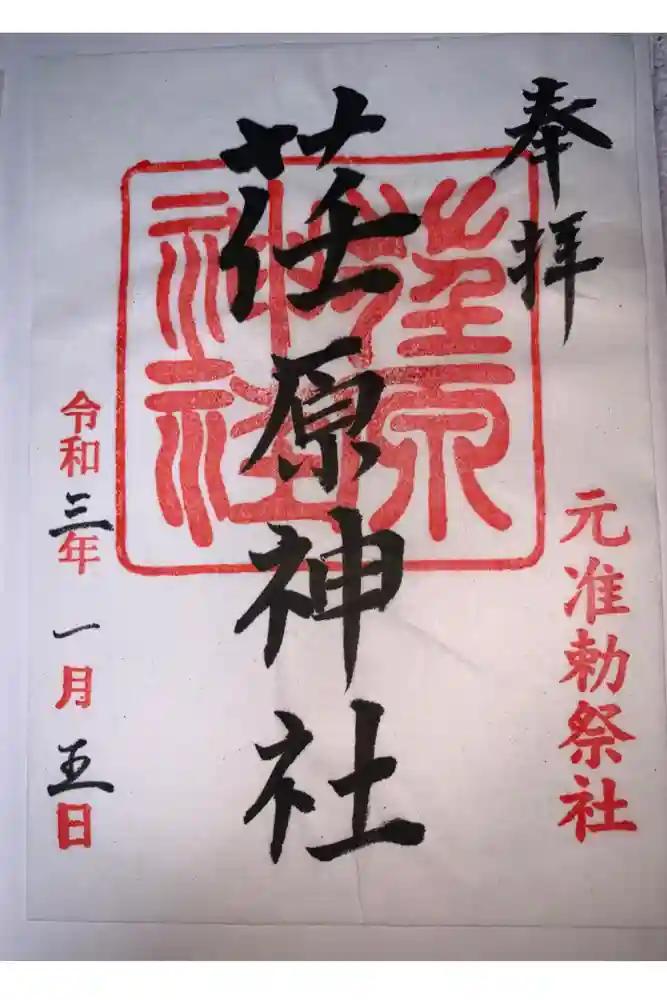 奉拝
元准勅祭社
荏原神社
荏原
神社
令和三年一月五日